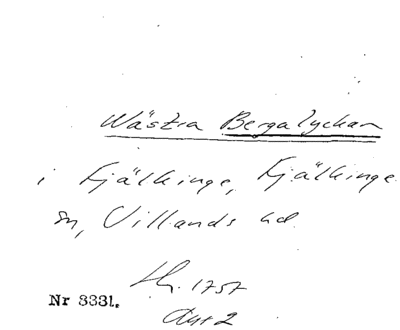 Wästra Bergalyckan
i Fjälkinge, Fjälkinge
sn, Villands hd.
Lh. 1757
Akt 2
Nr 3331.